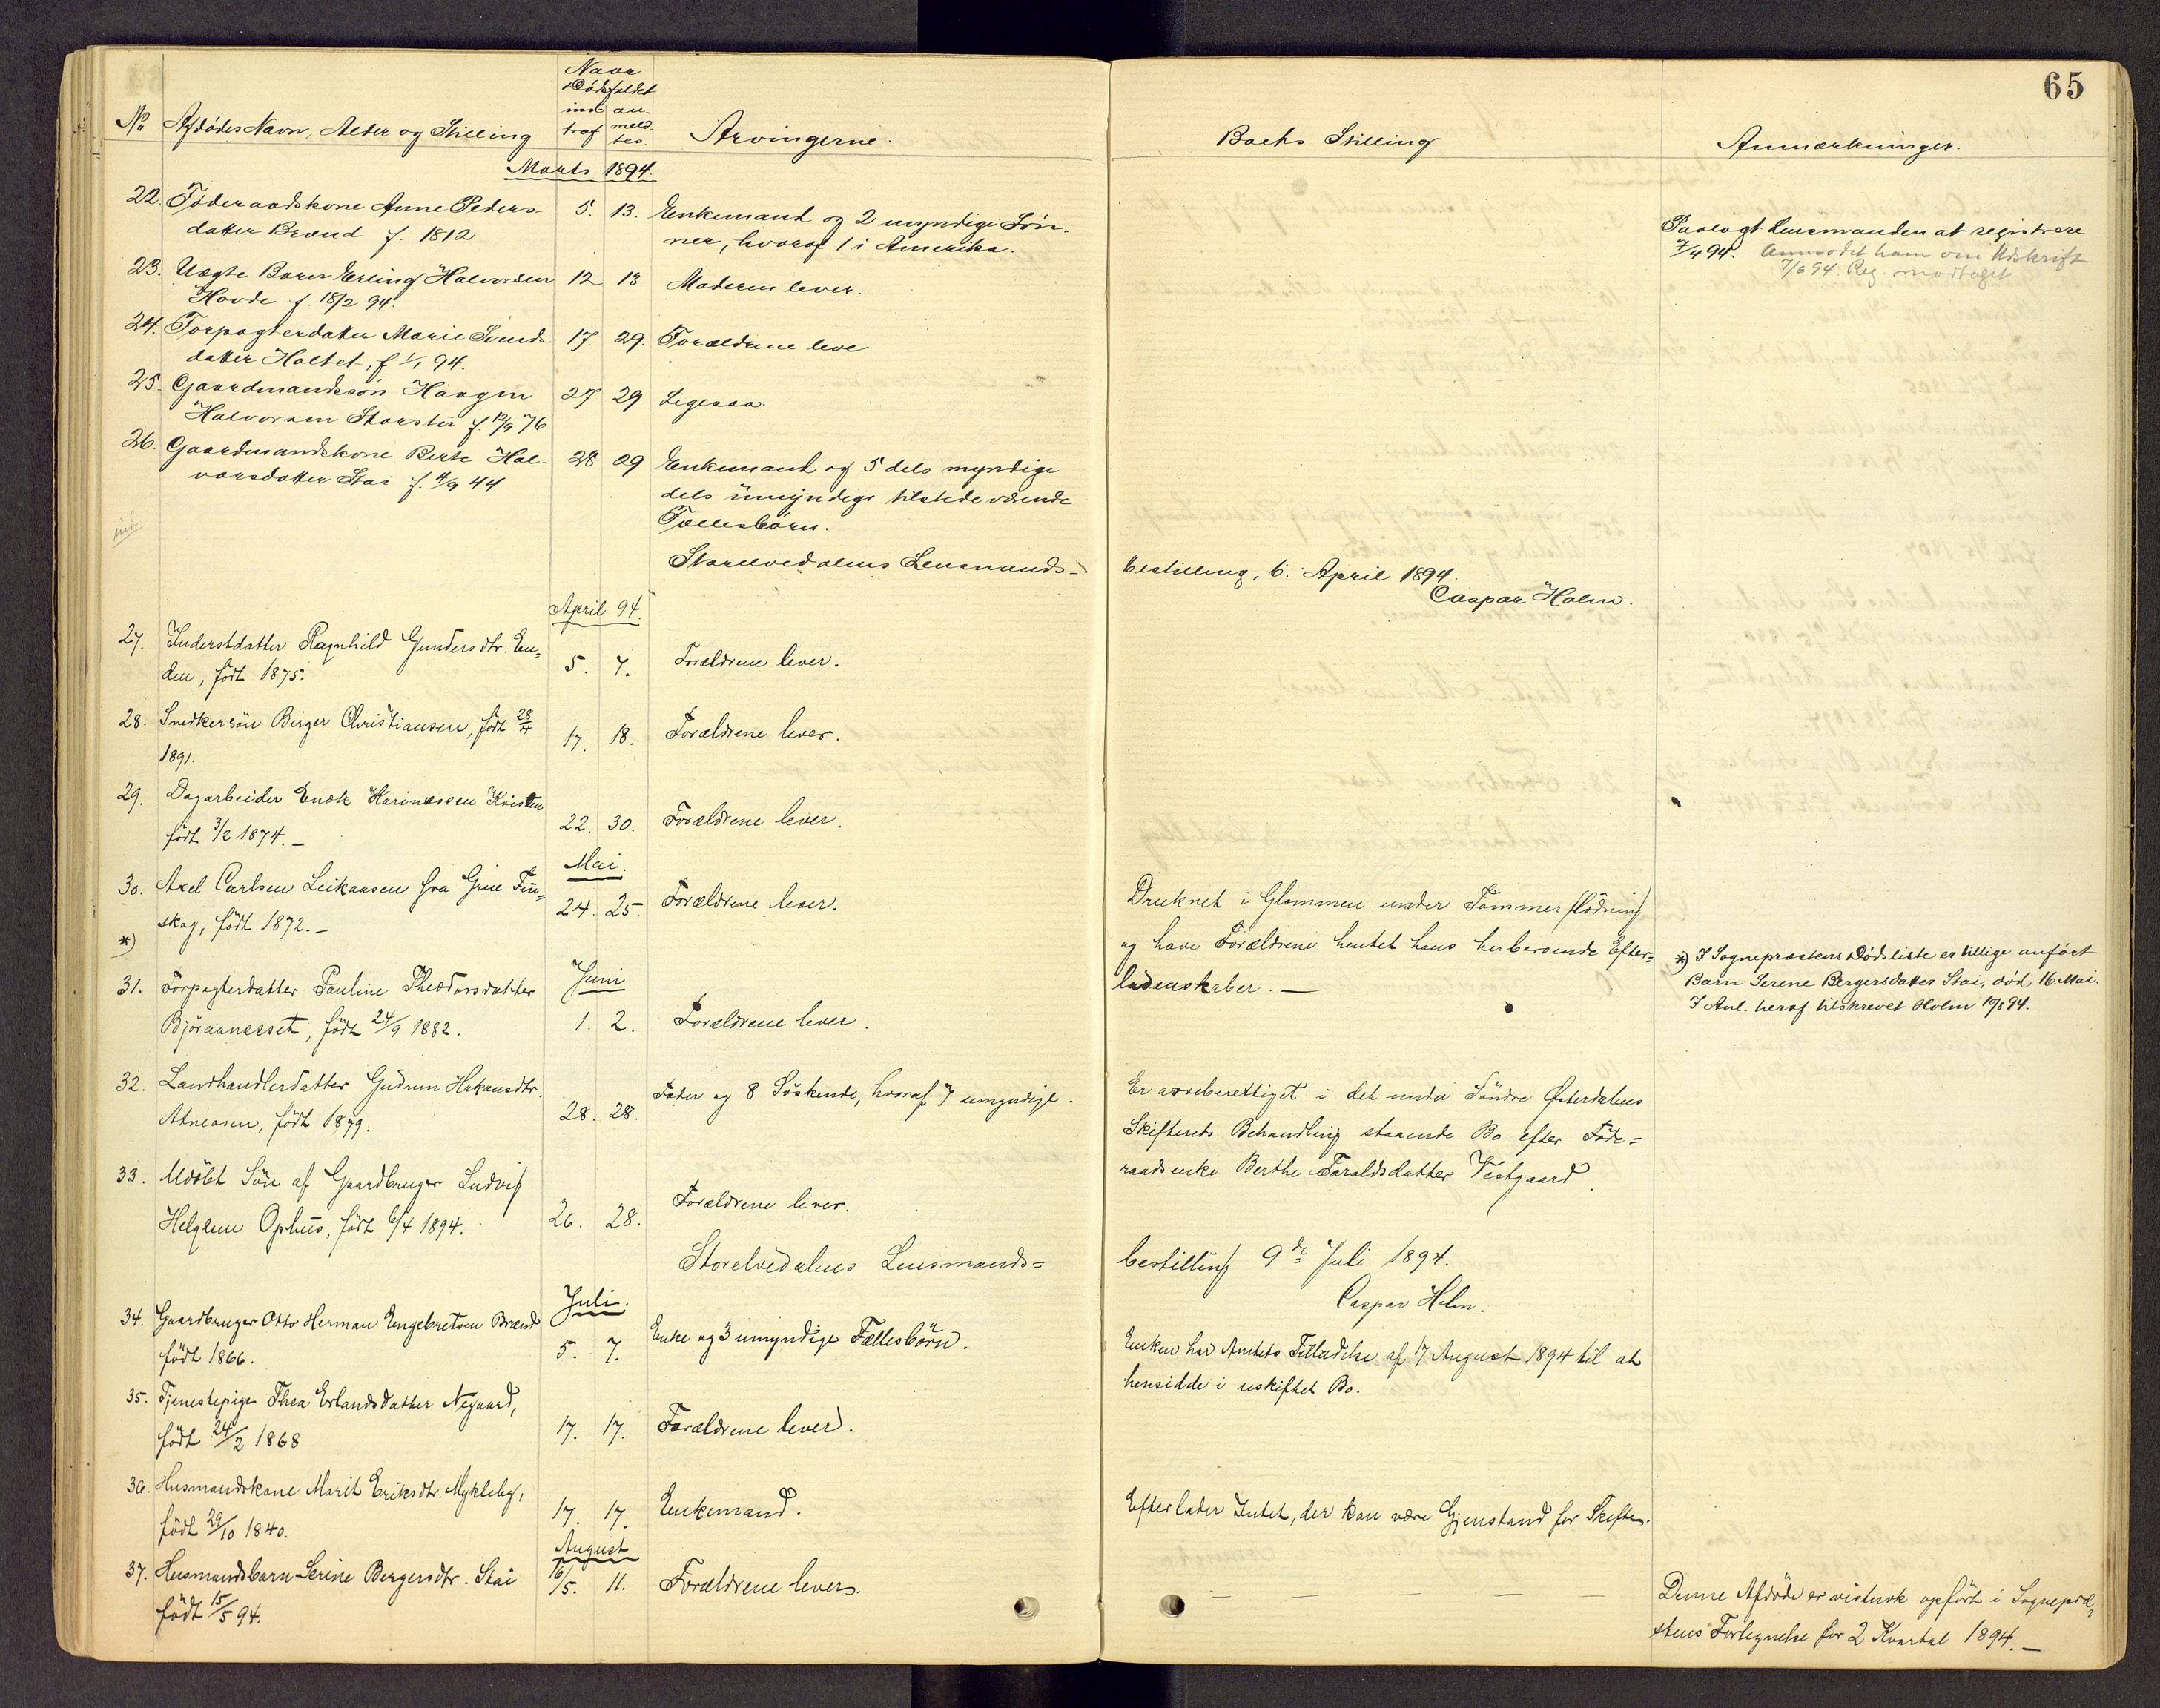 65
No Afdödes Navn, Alder og Stilling
Naar Dödsfaldet
ind traf
an- meld tes.
Arvingerne.
Boets Stilling
Anmærkninger.
Marts 1894.
22. Föderaadskone Anne Peders- 5. 13. Enkemand og 2 myndige Søn-
datter Brænd f. 1812 ner, hvoraf 1 i Amerika.
Paalagt Lensmanden at registrere
7/4 94. Anmodet ham om Udskrift
7/6 94. Reg. modtaget
23. Uægte Barn Erling Halvorsen 12 13 Moderen lever.
Hovde f. 18/2 94.
24. Forpagterdatter Marie Svends- 17. 29. Forældrene leve
datter Holtet, f 1/1 94.
25. Gaardmandssøn Haagen 27 29 Ligesaa.
Halvorsen Storstu f. 12/9 76
26. Gaardmandskone Berte Hal- 28 29 Enkemand og 5 dels myndige
vorsdatter Stai f. 4/9 44 dels umyndige tilstedeværende
Fællesbörn.
Storelvedalens Lensmands-
bestilling, 6. April 1894.
Caspar Holm.
April 94.
27. Inderstdatter Ragnhild Gundersdtr. En= 5. 7. Forældrene lever.
den, födt 1875.
28. Snedkersön Birger Christiansen, födt 28/4 17. 18. Forældrene lever.
1891.
29. Dagarbeider Enok Harinessen Kvisten 22. 30. Forældrene lever.
födt 3/2 1874. _
Mai.
30. Axel Carlsen Leikaasen fra Grue Fin= 24. 25. Forældrene lever.
skog, födt 1872. _
*)
Druknet i Glommen under Tömmerflödning
og have Forældrene hentet hans herberoende Efter=
ladenskaber. _
*) I Sogneprestens Dødsliste er tillige anført
Barn Serene Bergersdatter Stai, død 16 Mai.
I Anl. heraf tilskrevet Holm 10/8 94.
Juni
31. Forpagterdatter Pauline Theodorsdatter 1. 2. Forældrene lever.
Björaanesset, födt 24/9 1882.
32. Landhandlerdatter Gudrun Hakansdtr. 28. 28. Fader og 8 Söskende, hvoraf 7 umyndige.
Atneosen, födt 1879.
Er arveberettiget i det under Söndre Østerdalens
Skifterets Behandling staaende Bo efter Föde=
raadsenke Berthe Taraldsdatter Vestgaard.
33. Udöbt Sön af Gaardbruger Ludvig 26. 28. Forældrene lever.
Helgesen Ophus, födt 6/4 1894.
Storelvedalens Lensmands=
bestilling 9de Juli 1894.
Caspar Holm.
Juli.
34. Gaardbruger Otto Herman Engebretsen Brænd 5. 7. Enke og 3 umyndige Fællesbörn.
födt 1866.
Enken har Amtets Tilladelse af 17 August 1894 til at
hensidde i uskiftet Bo.
35. Tjenestepige Thea Erlandsdatter Negaard, 17. 17. Forældrene lever.
födt 24/2 1868
36. Husmandskone Marit Eriksdtr. Mykleby, 17. 17. Enkemand.
födt 29/10 1840.
Efterlader Intet, der kan være Gjenstand for Skifte.
August
37. Husmandsbarn Serine Bergersdtr. Stai 16/5. 11. Forældrene lever.
födt 15/5 94.
Denne Afdöde er vistnok opfört i Sognepræ=
stens Fortegnelse for 2 Kvartal 1894. _